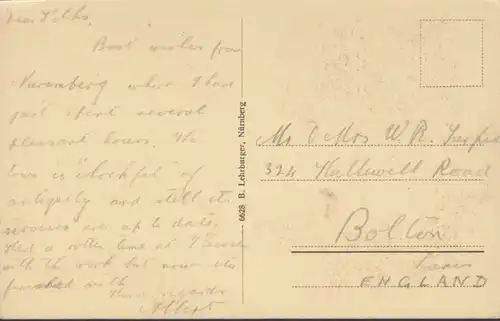 Dear Folks,
Best wishes from
Nuremberg where I have
just spent several
pleasant hours. The
town is "chockful" of
antiquity and still its
services are up to date.
Had a rotten time at
with the work but now
finished with
Albert
6628 B. Lehrburger, Nürnberg
Mr & Mrs W. R.
324 Halliwell Road
Bolton
Lancs
ENGLAND